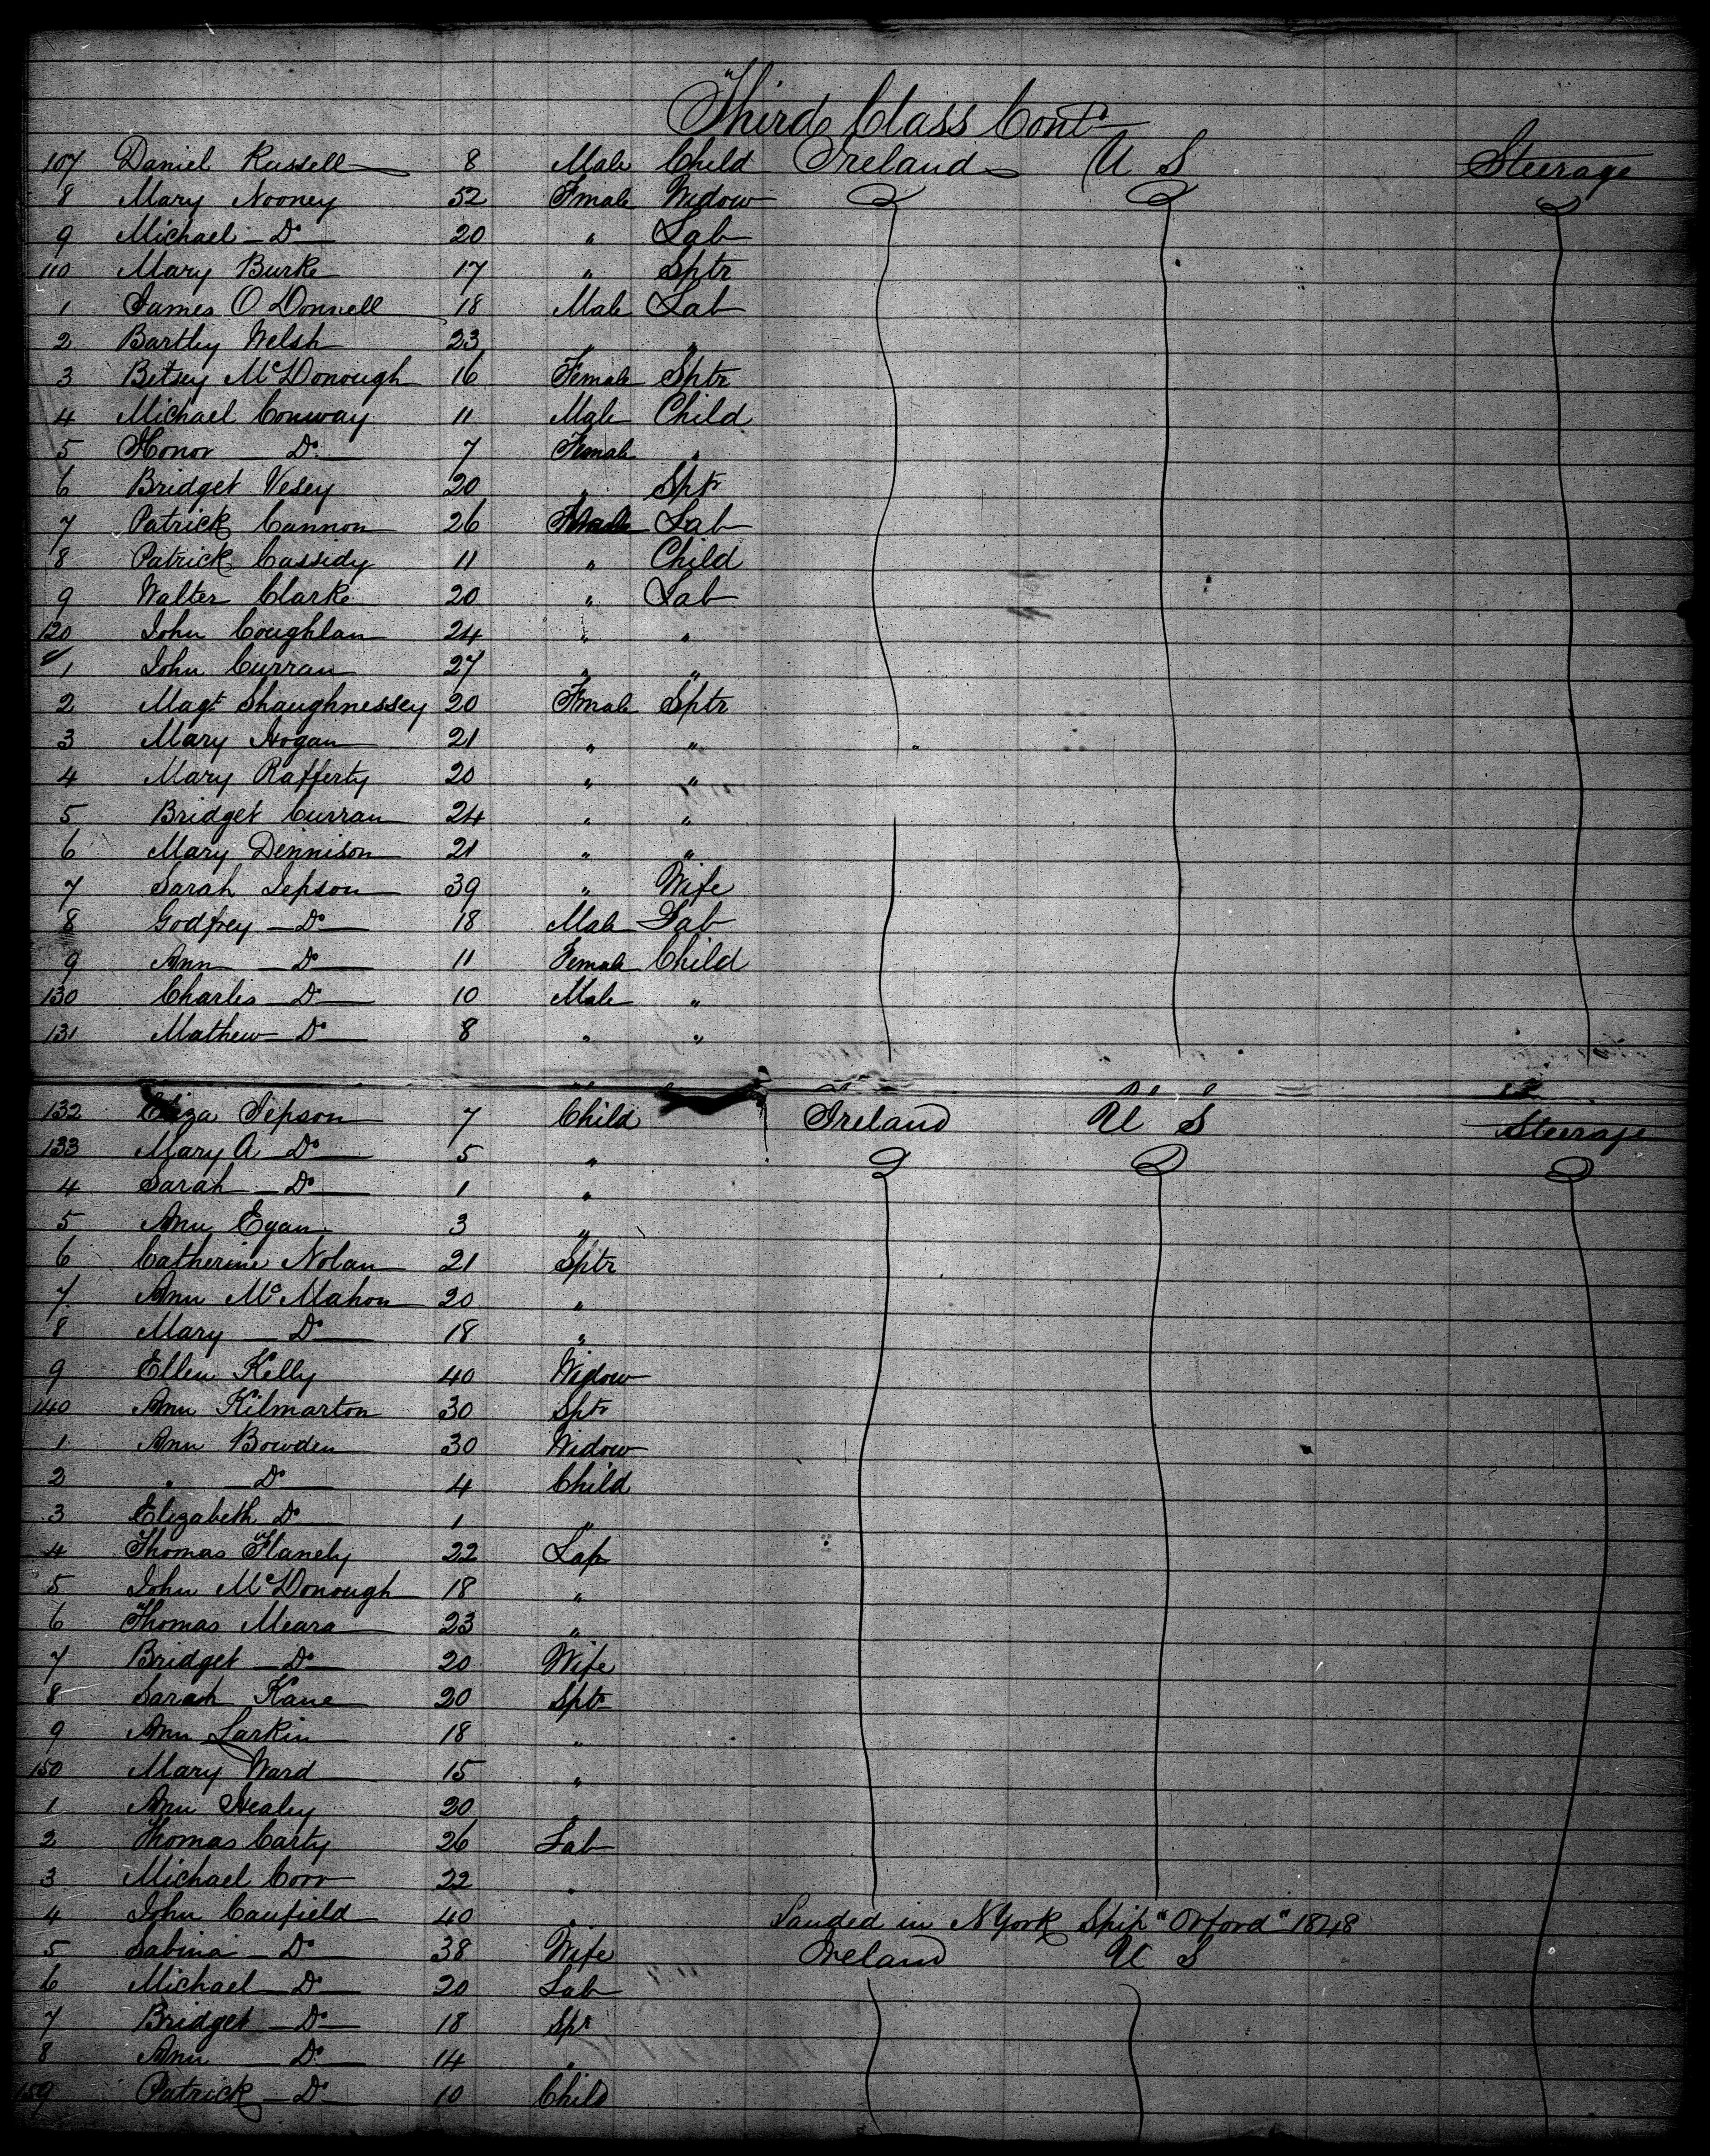 Third Class Contd
107 Daniel Russell 8 Male Child Ireland U S Steerage
8 Mary Nooney 52 Fmale Widow
9 Michael Do 20 " Lab
110 Mary Burke 17 " Sptr
1 James O Donnell 18 Male Lab
2 Bartley Welsh 23 " "
3 Betsey McDonough 16 Female Sptr
4 Michael Conway 11 Male Child
5 Honor Do 7 Female "
6 Bridget Vesey 20 " Sptr
7 Patrick Cannon 26 Male Lab
8 Patrick Cassidy 11 " Child
9 Walter Clarke 20 " Lab
120 John Coughlan 24 " "
1 John Curran 27 " "
2 Magt Shaughnessey 20 Fmale Sptr
3 Mary Hogan 21 " "
4 Mary Rafferty 20 " "
5 Bridget Curran 24 " "
6 Mary Dennison 21 " "
7 Sarah Jepson 39 " Wife
8 Godfrey Do 18 Male Lab
9 Ann Do 11 Female Child
130 Charles Do 10 Male "
131 Mathew Do 8 " "
132 Eliza Jepson 7 Child Ireland U S Steerage
133 Mary A Do 5 "
4 Sarah Do 1 "
5 Ann Egan 3 "
6 Catherine Nolan 21 Sptr
7 Ann McMahon 20 "
8 Mary Do 18 "
9 Ellen Kelly 40 Widow
140 Ann Kilmarton 30 Sptr
1 Ann Bowden 30 Widow
2 " Do 4 Child
3 Elizabeth Do 1 "
4 Thomas Flanely 22 Lab
5 John McDonough 18 "
6 Thomas Meara 23 "
7 Bridget Do 20 Wife
8 Sarah Kane 20 Sptr
9 Ann Larkin 18 "
150 Mary Ward 15 "
1 Ann Healey 20 "
2 Thomas Carty 26 Lab
3 Michael Corr 22 "
4 John Caufield 40 " Landed in N York Ship "Oxford" 1848
5 Sabina Do 38 Wife Ireland U S
6 Michael Do 20 Lab
7 Bridget Do 18 Spr
8 Ann Do 14 "
159 Patrick Do 10 Child